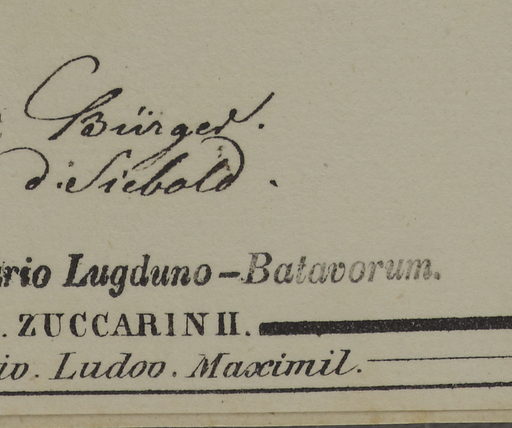 Bürger.
d. Siebold.
ario Lugduno-Batavorum.
. ZUCCARINII.
io. Ludov. Maximil.